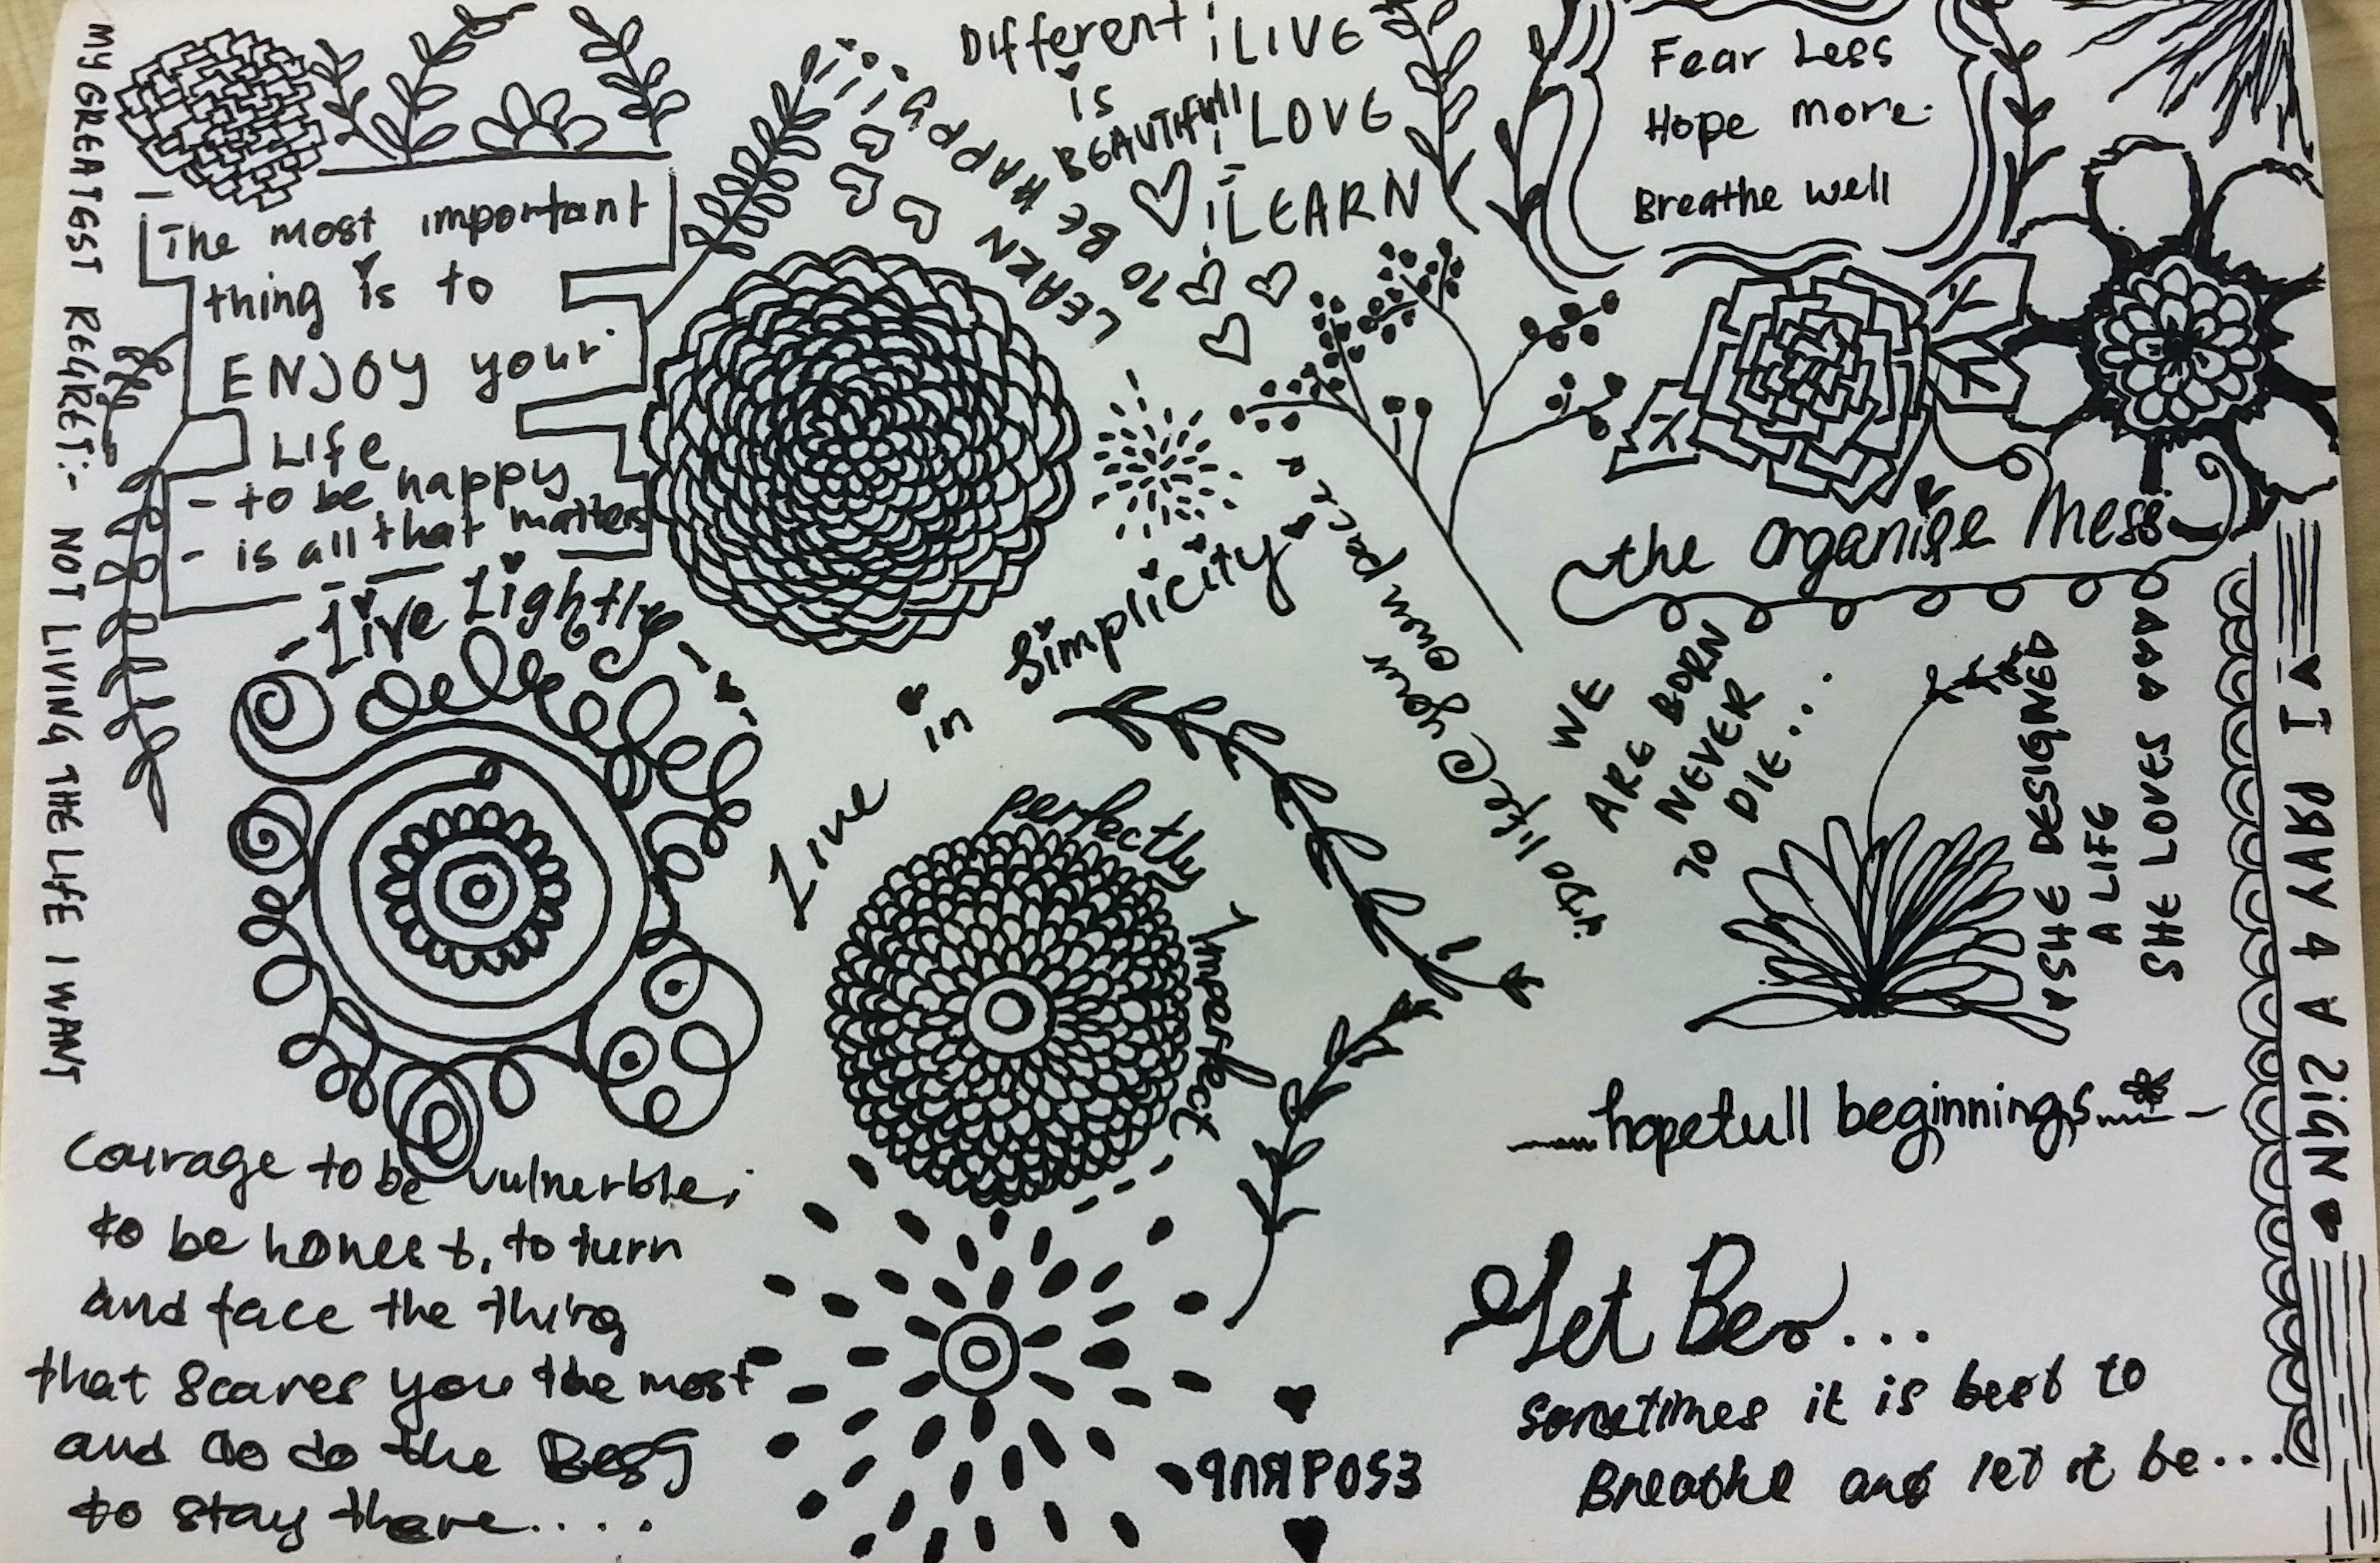 MY GREATEST REGRET:- NOT LIVING THE LIFE I WANT
The most important
thing is to
ENJOY your
Life
- to be happy
- is all that matters
Different
is
BEAUTIFUll
LIVE
LOVE
LEARN
LEARN
TO BE HAPPY
Fear Less
Hope more
Breathe well
the organise Mess
Live Lightly
Live in Simplicity
"Do life @ your own pace"
WE
ARE BORN
NEVER
TO DIE...
SHE DESIGNED
A LIFE
SHE LOVES
I PRAY 4 A SIGN
perfectly Imperfect
hopefull beginnings
Courage to be vulnerble;
to be honest, to turn
and face the thing
that scares you the most
and do the Best
to stay there....
PURPOSE
Let Be...
sometimes it is best to
Breathe and let it be...